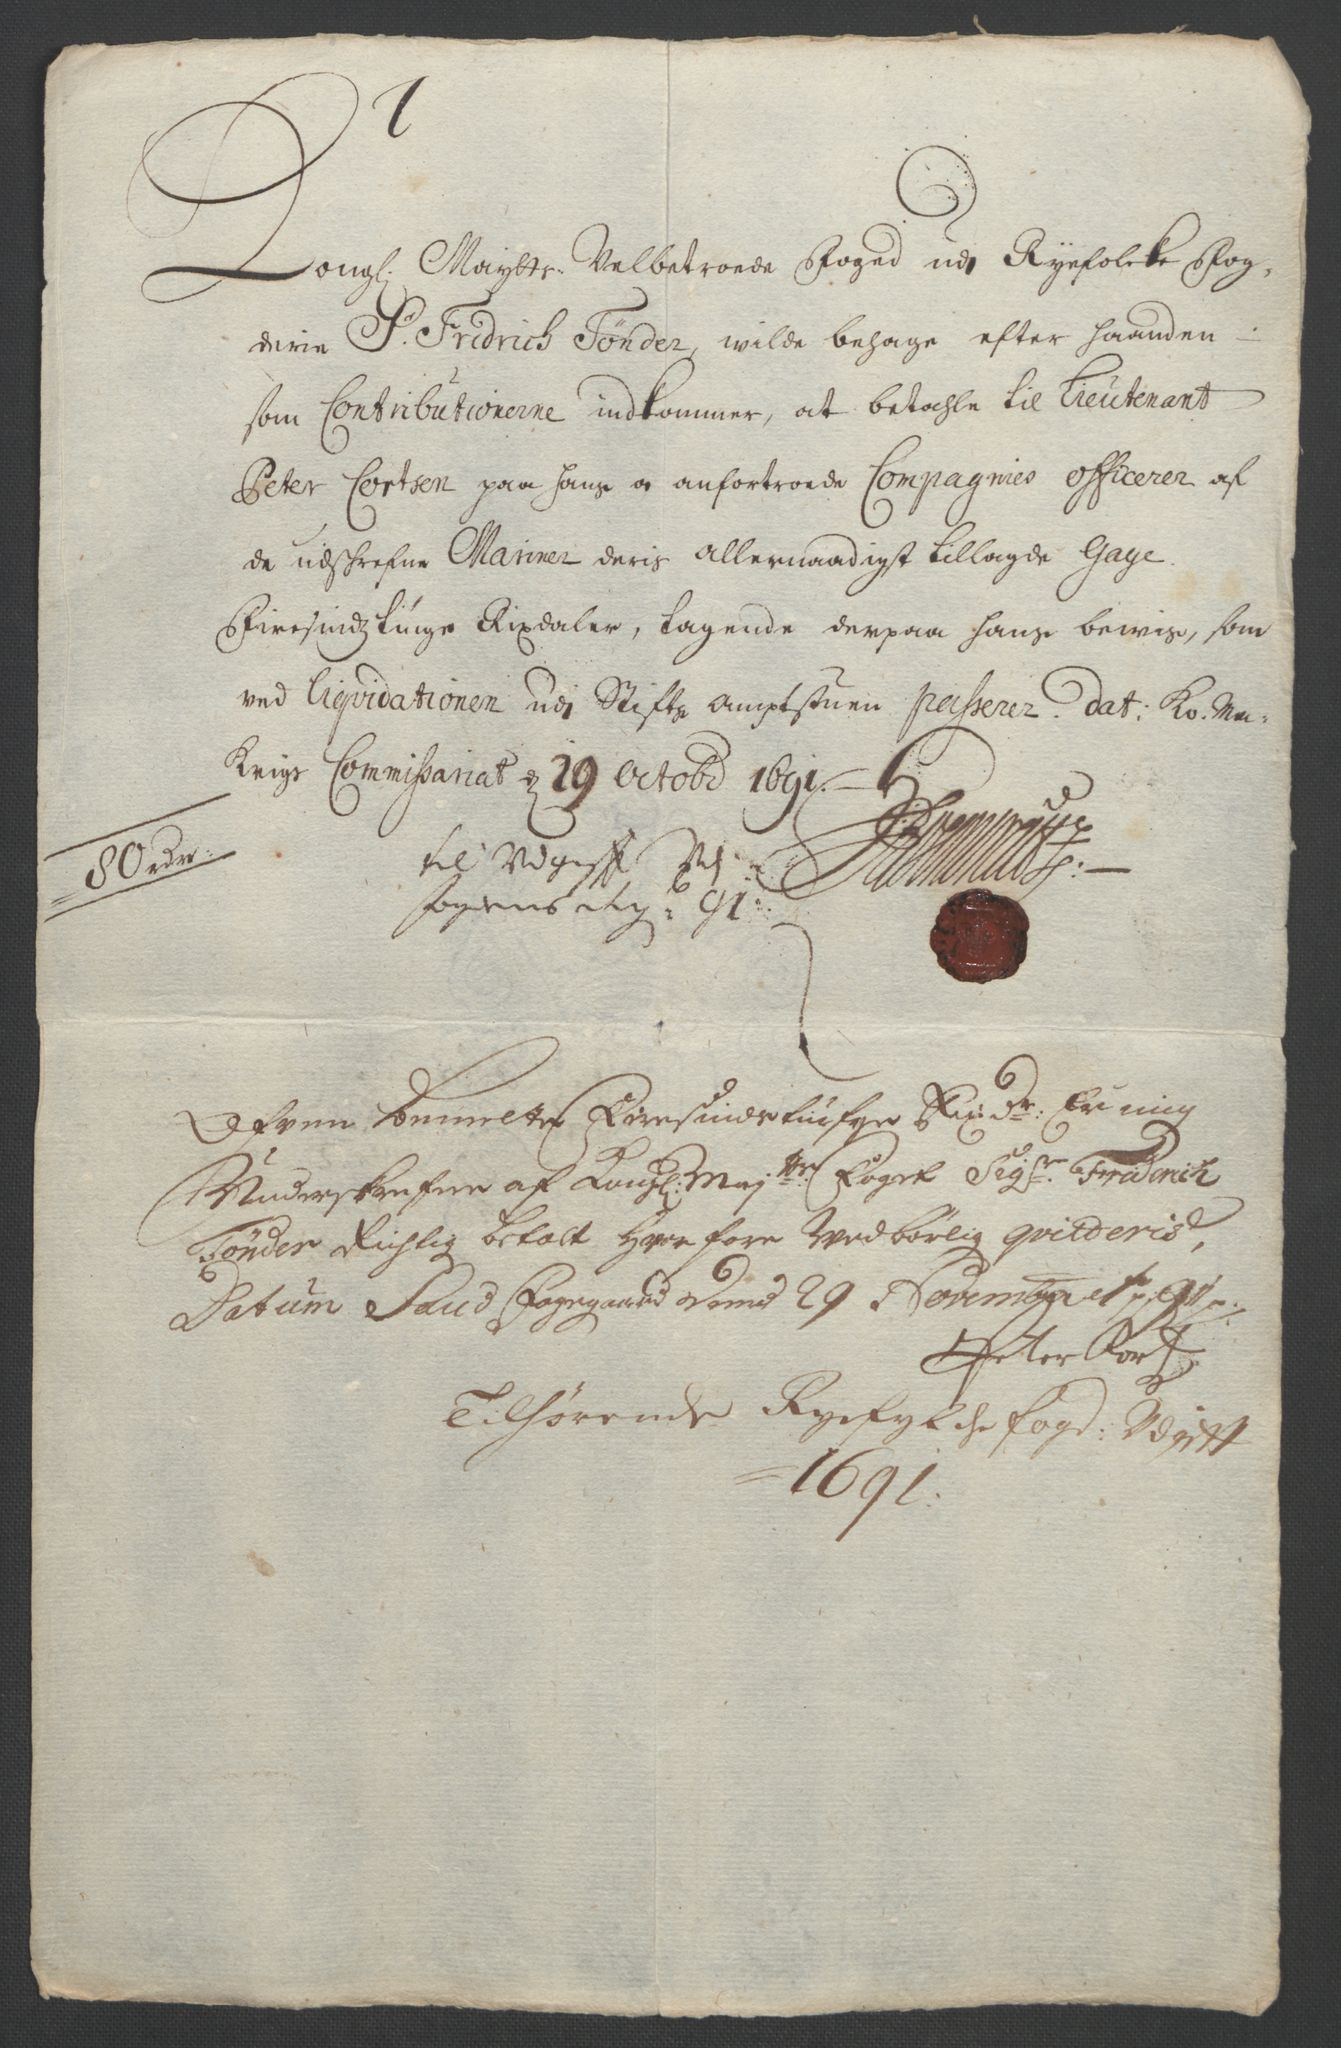 1
Kongl: Maÿtts: Velbetroede Foged udi Ryefolcke Fog-
derie Sr. Fridrich Tönder, wilde behage efter haanden
som Contributionerne indkommer, at betahle til Lieutenant
Peter Cortsen paa hans a anfortroede Compagnies officerer af
de udschrefne Mariner deris allernaadigst tillagde Gage
Firesindz tiuge Rixdaler, tagende derpaa hans beviis, som
ved Liqvidationen udi Stiftz amptstuen passerer. dat: Ko. Ma.
Krigs Commissariat d 29 Octobr 1691.
80 rdr:
til Udgift
fogdens 91
Ofven bemelte Firesindstiufge Rixdr: Er mig
Underskrefne af Kongl: Maj ttz: Foget Sigr. Friderich
Tönder Rigtig betalt Hvor fore Vedbörlig qvitteris,
Datum Saud Fogegaard 29 Novembr 1691
Peter Cort
Tilhörende Ryefylche fogd: Udgift
1691.